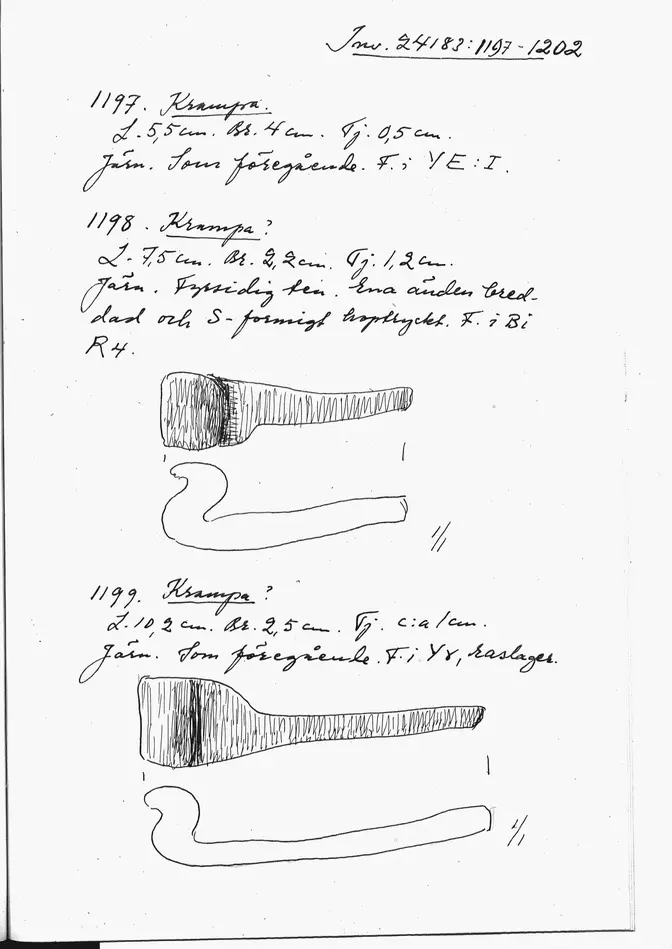 Inv. 24183:1197-1202
1197. Krampa.
L. 5,5 cm. Br. 4 cm. Tj. 0,5 cm.
Järn. Som föregående. F. i YE:I.
1198. Krampa?
L. 7,5 cm. Br. 2,2 cm. Tj. 1,2 cm.
Järn. Fyrsidig ten. Ena änden bred-
dad och S-formigt hoptryckt. F. i Bi
R4.
1/1
1199. Krampa?
L. 10,2 cm. Br. 2,5 cm. Tj. c:a 1 cm.
Järn. Som föregående. F. i Yr, raslager.
1/1